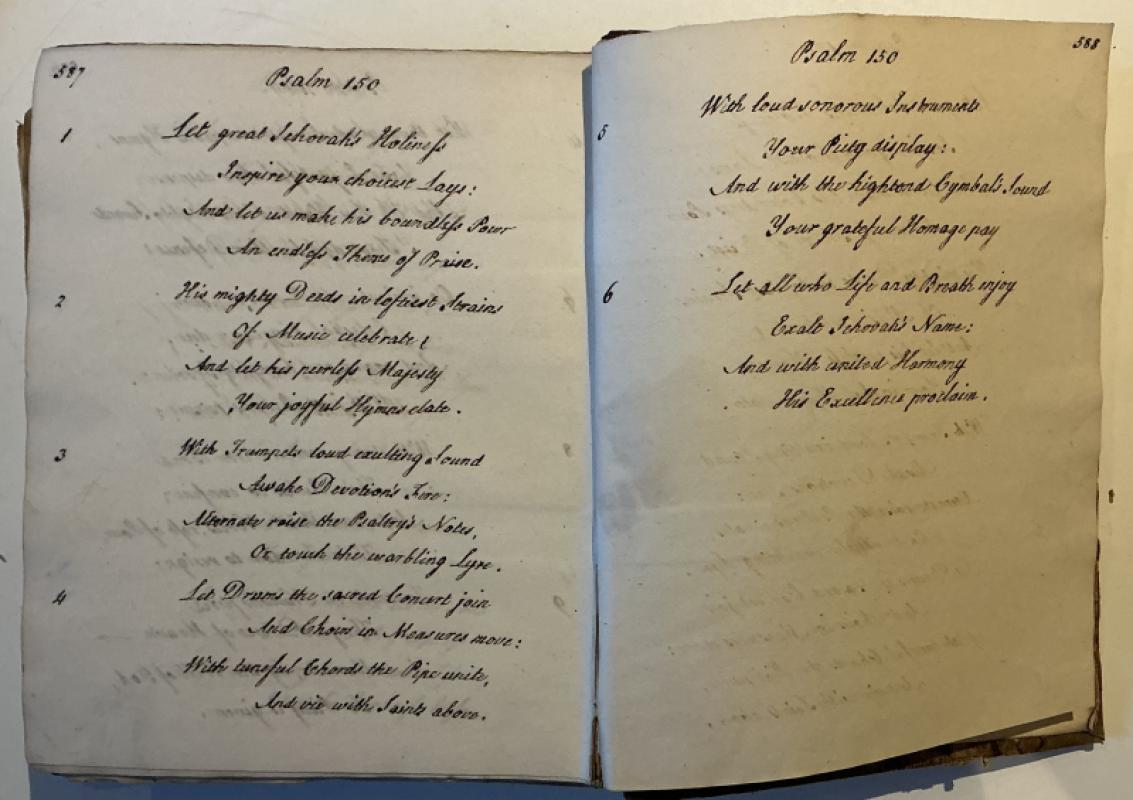 587
Psalm 150
1 Let great Jehovah's Holiness
Inspire your choicest Lays:
And let us make his boundless Powr
An endless Theme of Praise.
2 His mighty Deeds in loftiest Strains
Of Music celebrate;
And let his peerless Majesty
Your joyful Hymns elate.
3 With Trumpets loud exulting Sound
Awake Devotion's Fire:
Alternate raise the Psaltry's Notes,
Or touch the warbling Lyre.
4 Let Drums the sacred Concert join
And Choirs in Measures move:
With tuneful Chords the Pipe unite,
And vie with Saints above.
588
Psalm 150
5 With loud sonorous Instruments
Your Piety display:
And with the hightend Cymbal's Sound
Your grateful Homage pay
6 Let all who Life and Breath enjoy
Exalt Jehovah's Name:
And with united Harmony
His Excellence proclaim.